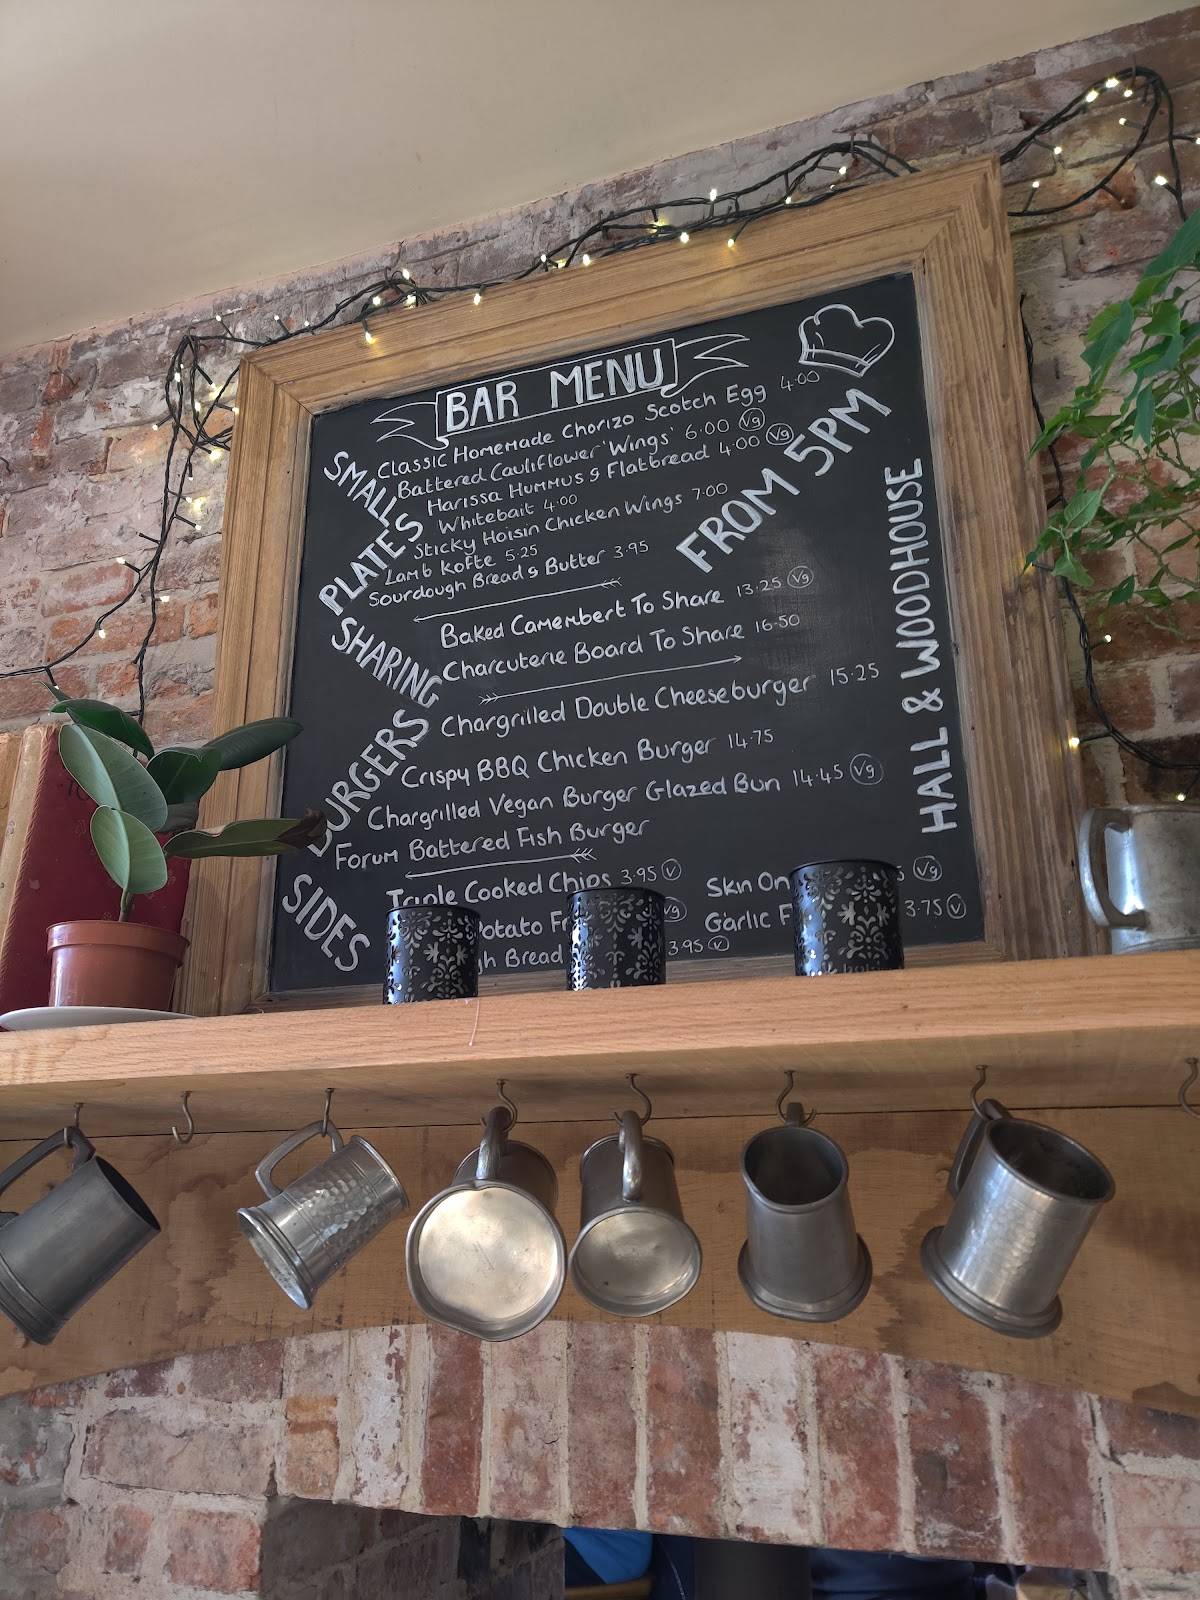 BAR MENU
SMALL PLATES
Classic Homemade Chorizo Scotch Egg 4.00
Battered Cauliflower 'Wings' 6.00 Vg
Harissa Hummus & Flatbread 4.00 Vg
Whitebait 4.00
Sticky Hoisin Chicken Wings 7.00
Lamb Kofte 5.25
Sourdough Bread & Butter 3.95
FROM 5PM
SHARING
Baked Camembert To Share 13.25 Vg
Charcuterie Board To Share 16.50
BURGERS
Chargrilled Double Cheeseburger 15.25
Crispy BBQ Chicken Burger 14.75
Chargrilled Vegan Burger Glazed Bun 14.45 Vg
Forum Battered Fish Burger
SIDES
Triple Cooked Chips 3.95 V
Skin On Vg
Potato Vg
Garlic 3.75 V
Bread 3.95 V
HALL & WOODHOUSE